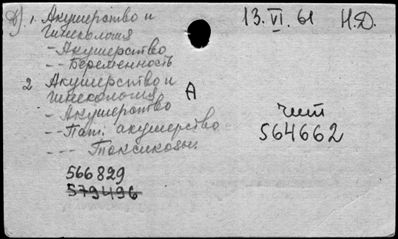 1. Акушерство и 13.VI.61 Н.Д.
Гинекология
- Акушерство
-- Беременность
2 Акушерство и
Гинекология А
- Акушерство чит
-- Пат. акушерство 564662
--- Токсикозы
566829
579496